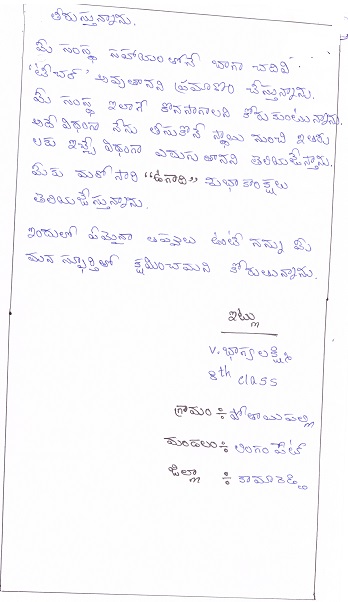 తీరుస్తున్నాను.
మీ సంస్థ సహాయంతోనే బాగా చదివి
'టీచర్' అవుతానని ప్రమాణం చేస్తున్నాను.
మీ సంస్థ ఇలాగే కొనసాగాలని కోరుకుంటున్నాను.
అదే విధంగా నేను తీసుకొనే స్థాయి నుంచి ఇతరు
లకు ఇచ్చే విధంగా ఎదుగుతానని తెలియజేస్తాను.
మీకు మరోసారి "ఉగాది" శుభాకాంక్షలు
తెలియజేస్తున్నాను.
ఇందులో ఏమైనా తప్పులు ఉంటే నన్ను మీ
మన స్ఫూర్తితో క్షమించమని కోరుతున్నాను.
ఇట్లు
V. భాగ్యలక్ష్మి
8th class
గ్రామం ÷ పోతాయిపల్లి
మండలం ÷ లింగంపేట్
జిల్లా ÷ కామారెడ్డి